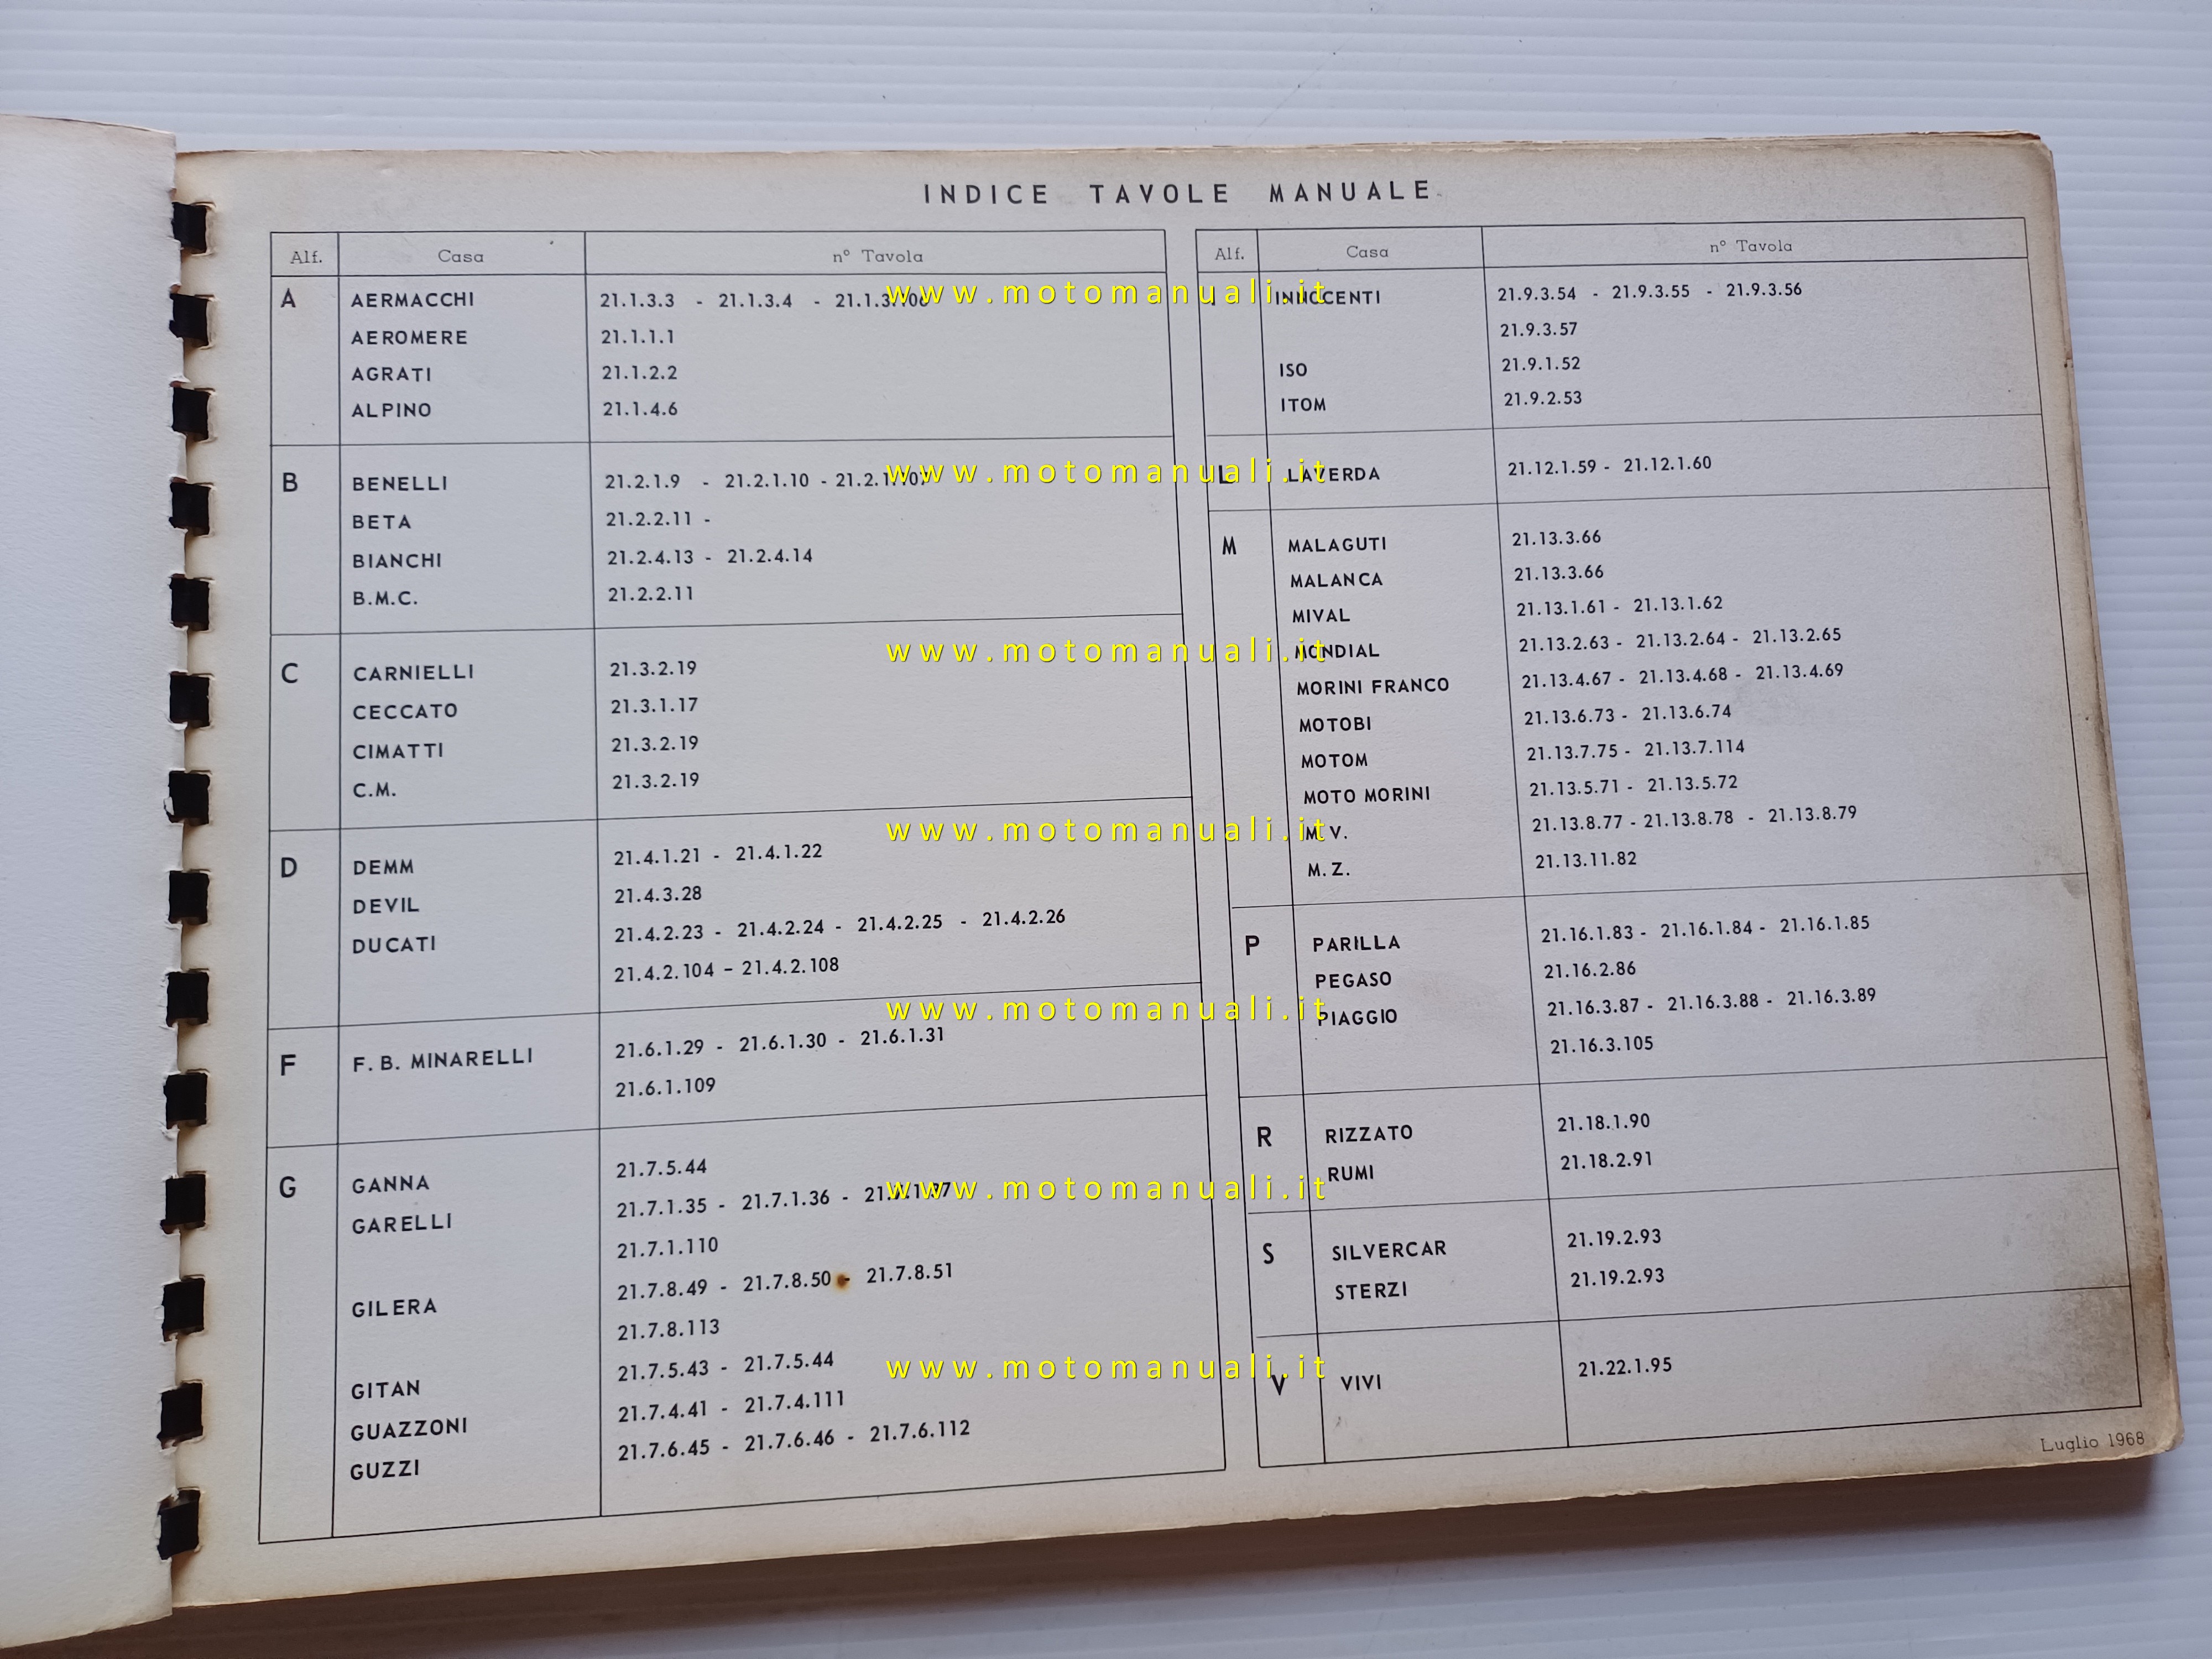 INDICE TAVOLE MANUALE
Alf. Casa n° Tavola
A AERMACCHI 21.1.3.3 - 21.1.3.4 -
AEROMERE 21.1.1.1
AGRATI 21.1.2.2
ALPINO 21.1.4.6
B BENELLI 21.2.1.9 - 21.2.1.10 -
BETA 21.2.2.11 -
BIANCHI 21.2.4.13 - 21.2.4.14
B.M.C. 21.2.2.11
C CARNIELLI 21.3.2.19
CECCATO 21.3.1.17
CIMATTI 21.3.2.19
C.M. 21.3.2.19
D DEMM 21.4.1.21 - 21.4.1.22
DEVIL 21.4.3.28
DUCATI 21.4.2.23 - 21.4.2.24 - 21.4.2.25 - 21.4.2.26
21.4.2.104 - 21.4.2.108
F F. B. MINARELLI 21.6.1.29 - 21.6.1.30 - 21.6.1.31
21.6.1.109
G GANNA 21.7.5.44
GARELLI 21.7.1.35 - 21.7.1.36 -
21.7.1.110
GILERA 21.7.8.49 - 21.7.8.50 - 21.7.8.51
21.7.8.113
GITAN 21.7.5.43 - 21.7.5.44
GUAZZONI 21.7.4.41 - 21.7.4.111
GUZZI 21.7.6.45 - 21.7.6.46 - 21.7.6.112
Alf. Casa n° Tavola
INNOCENTI 21.9.3.54 - 21.9.3.55 - 21.9.3.56
21.9.3.57
ISO 21.9.1.52
ITOM 21.9.2.53
L LAVERDA 21.12.1.59 - 21.12.1.60
M MALAGUTI 21.13.3.66
MALANCA 21.13.3.66
MIVAL 21.13.1.61 - 21.13.1.62
MONDIAL 21.13.2.63 - 21.13.2.64 - 21.13.2.65
MORINI FRANCO 21.13.4.67 - 21.13.4.68 - 21.13.4.69
MOTOBI 21.13.6.73 - 21.13.6.74
MOTOM 21.13.7.75 - 21.13.7.114
MOTO MORINI 21.13.5.71 - 21.13.5.72
M. V. 21.13.8.77 - 21.13.8.78 - 21.13.8.79
M. Z. 21.13.11.82
P PARILLA 21.16.1.83 - 21.16.1.84 - 21.16.1.85
PEGASO 21.16.2.86
PIAGGIO 21.16.3.87 - 21.16.3.88 - 21.16.3.89
21.16.3.105
R RIZZATO 21.18.1.90
RUMI 21.18.2.91
S SILVERCAR 21.19.2.93
STERZI 21.19.2.93
V VIVI 21.22.1.95
Luglio 1968
www.motomanuali.it
www.motomanuali.it
www.motomanuali.it
www.motomanuali.it
www.motomanuali.it
www.motomanuali.it
www.motomanuali.it